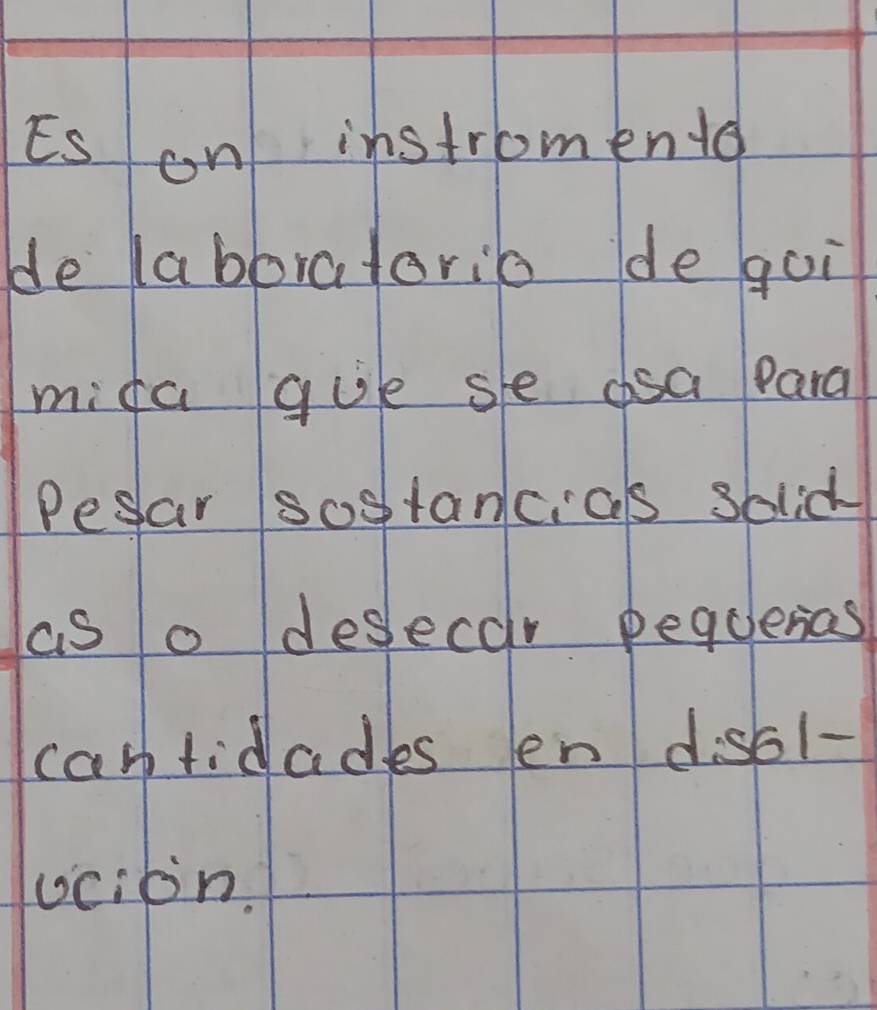 Es un instrumento
de laboratorio de qui
mica que se usa Para
Pesar sustancias solid
as o desecar pequeñas
cantidades en disol-
ución.